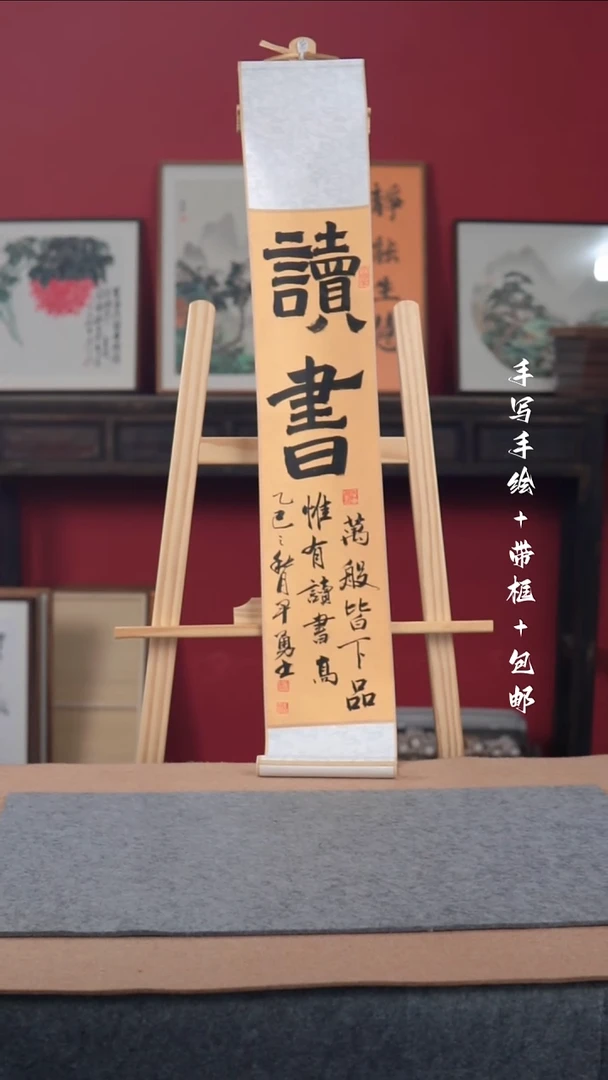 讀書
萬般皆下品
惟有讀書高
乙巳之秋月早勇士
靜
生
手写手绘+带框+包邮